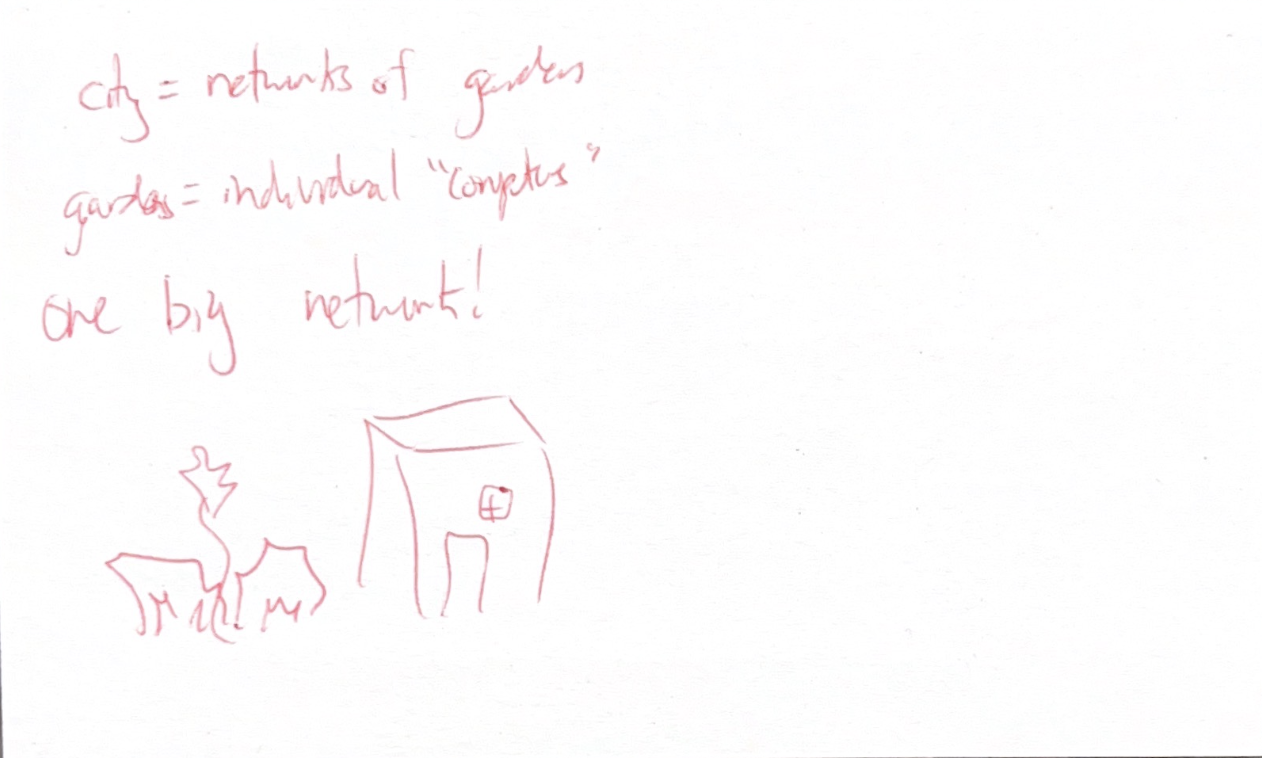 city = networks of gardens
gardens = individual "computers"
one big network!